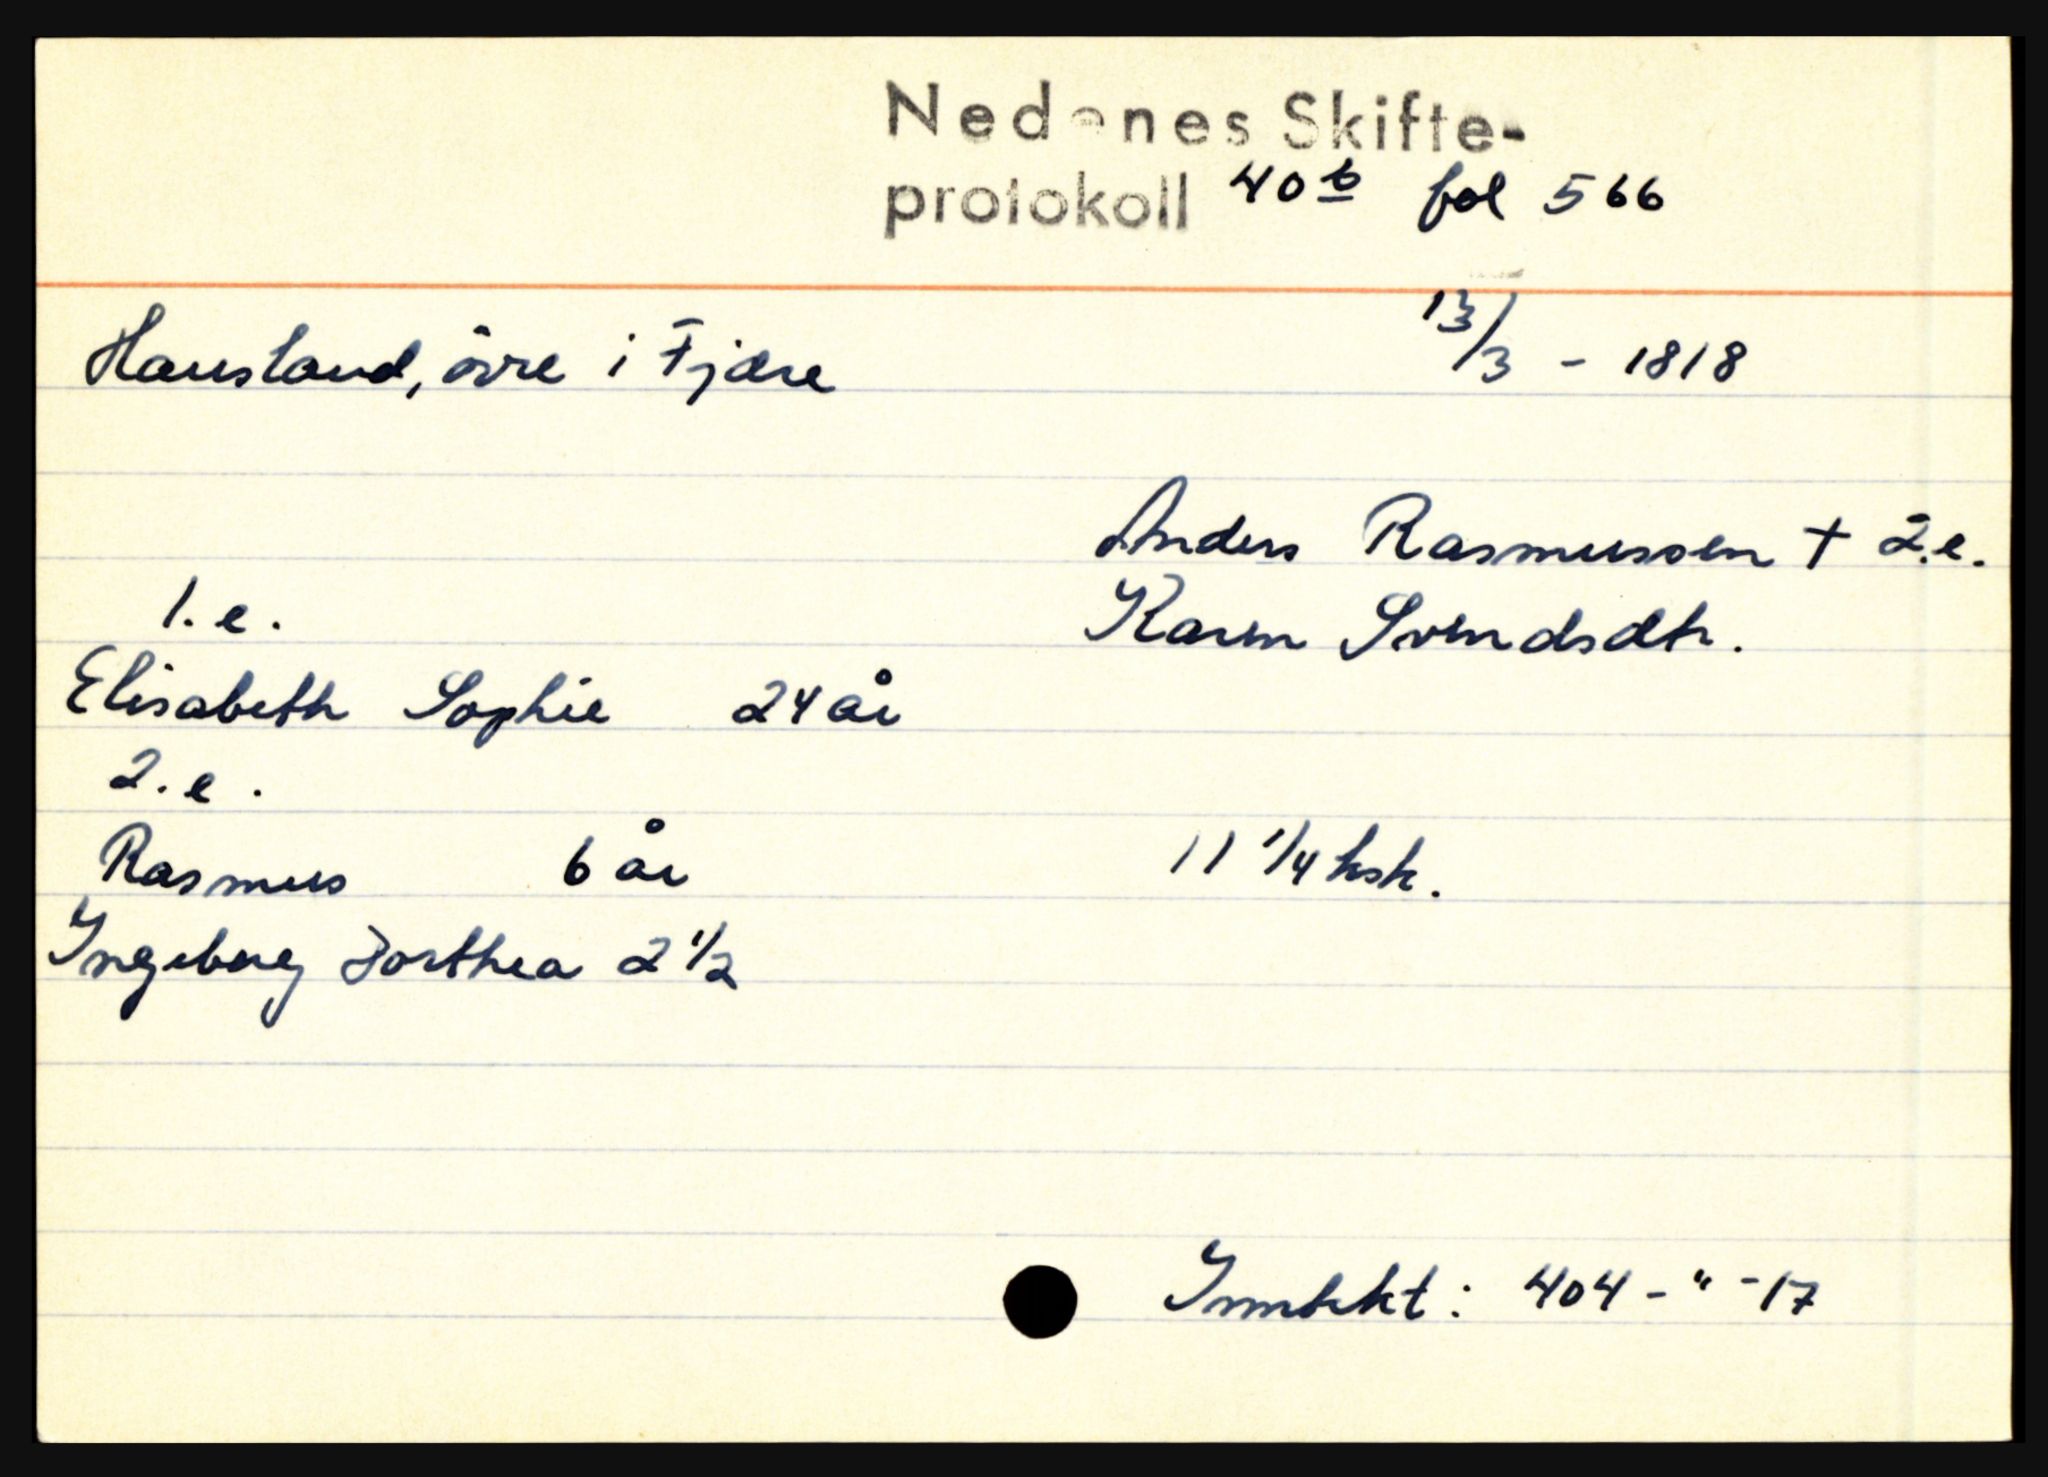 Nedenes Skifte-
protokoll 40b fol 566
Hausland, övre i Fjære 13/3 - 1818
Anders Rasmussen † 2.e.
1.e. Karen Svendsdtr.
Elisabeth Sophie 24 år
2.e.
Rasmus 6 år 11 1/4 ksk.
Ingeborg Dorthea 2 1/2
Inntekt: 404 - " - 17